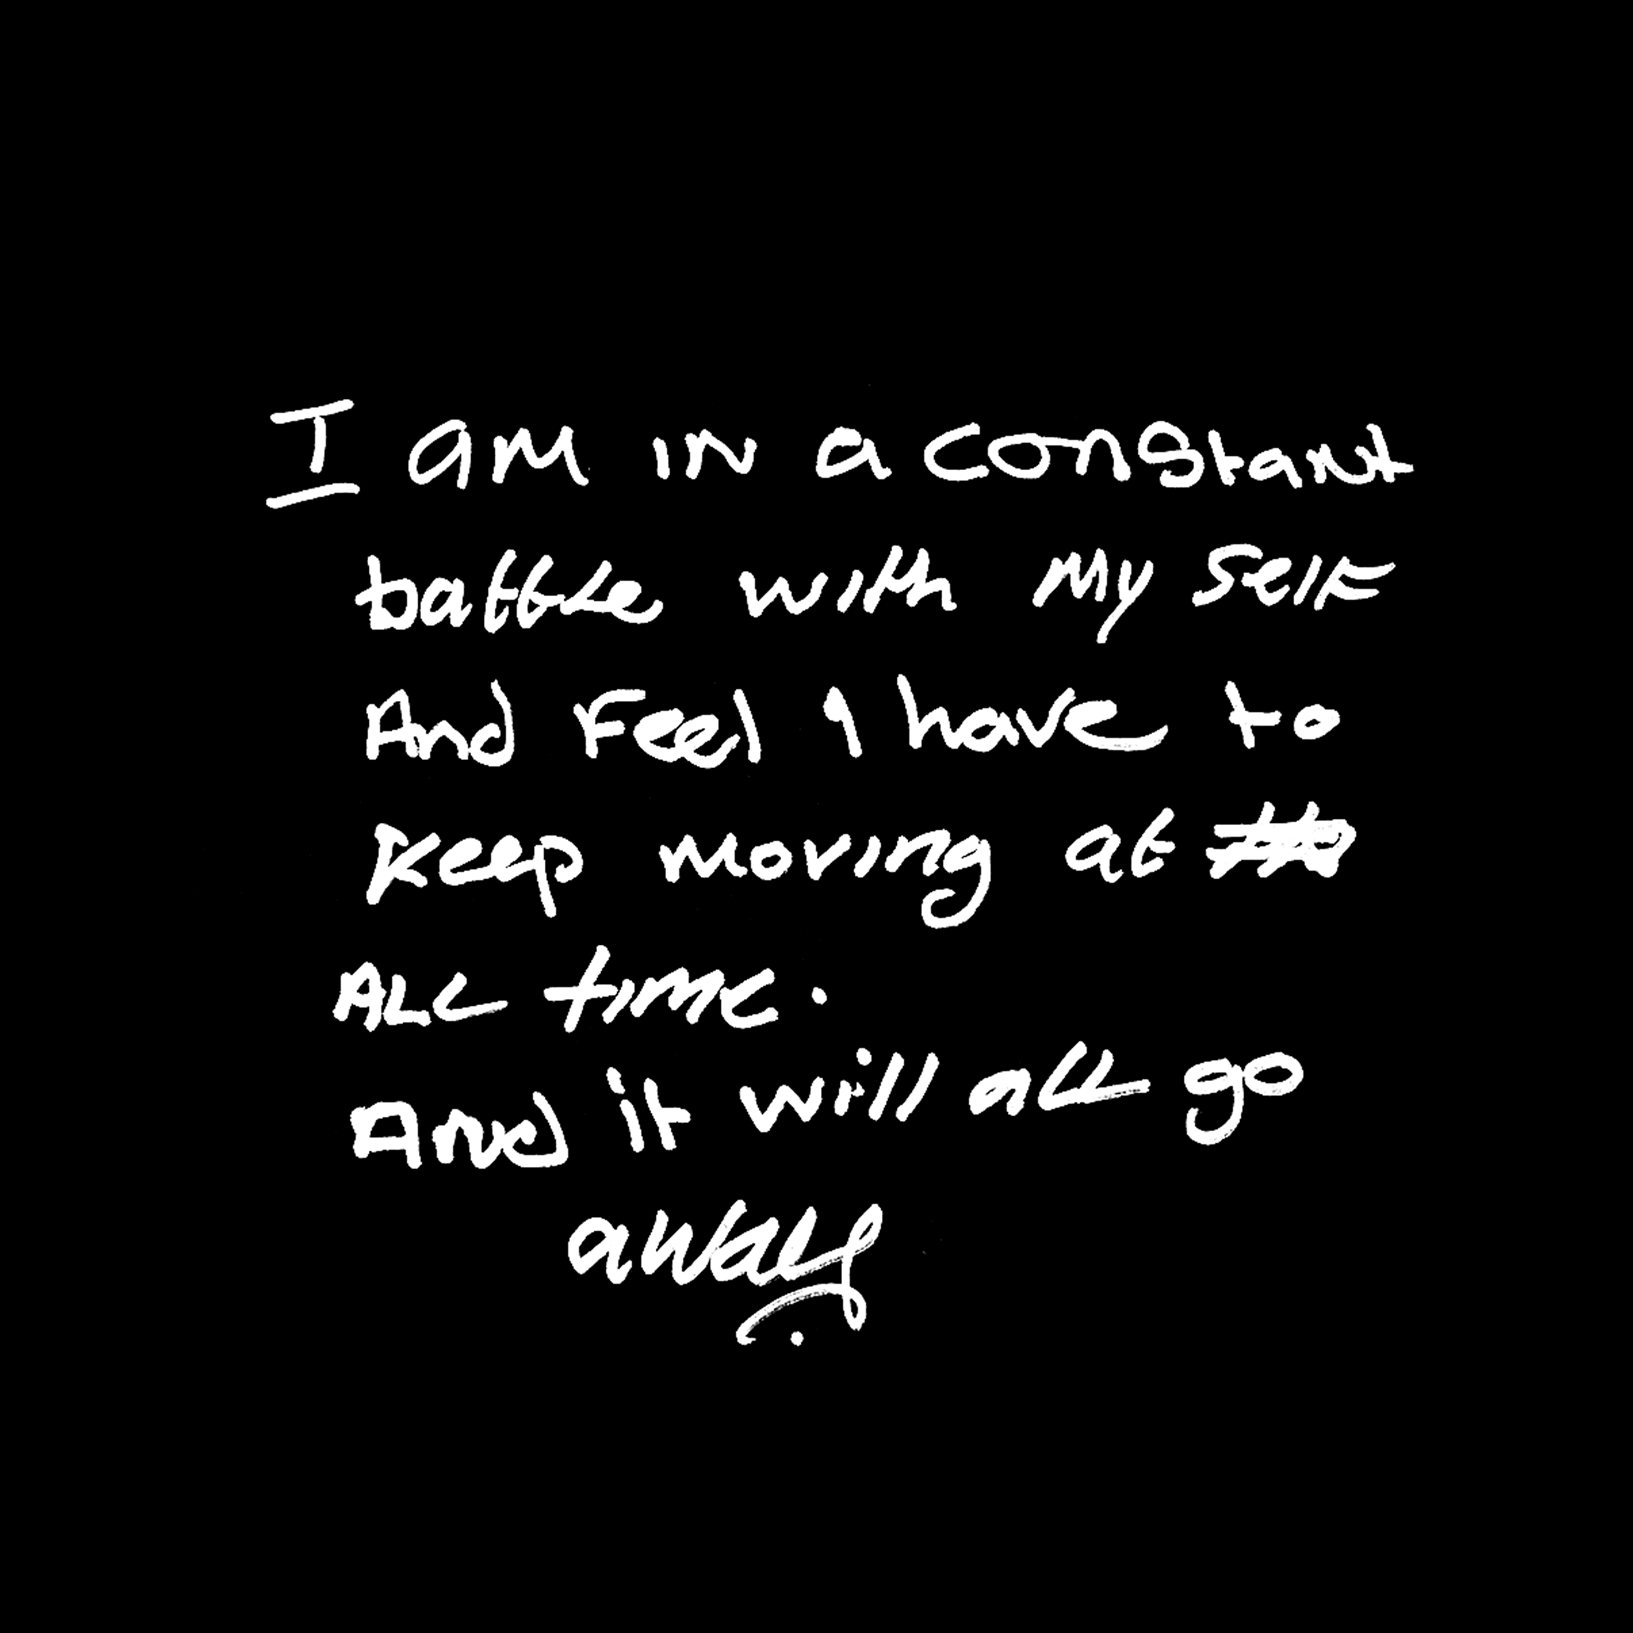 I am in a constant
battle with my self
And Feel I have to
Keep moving at
ALL time.
And it will all go
away.